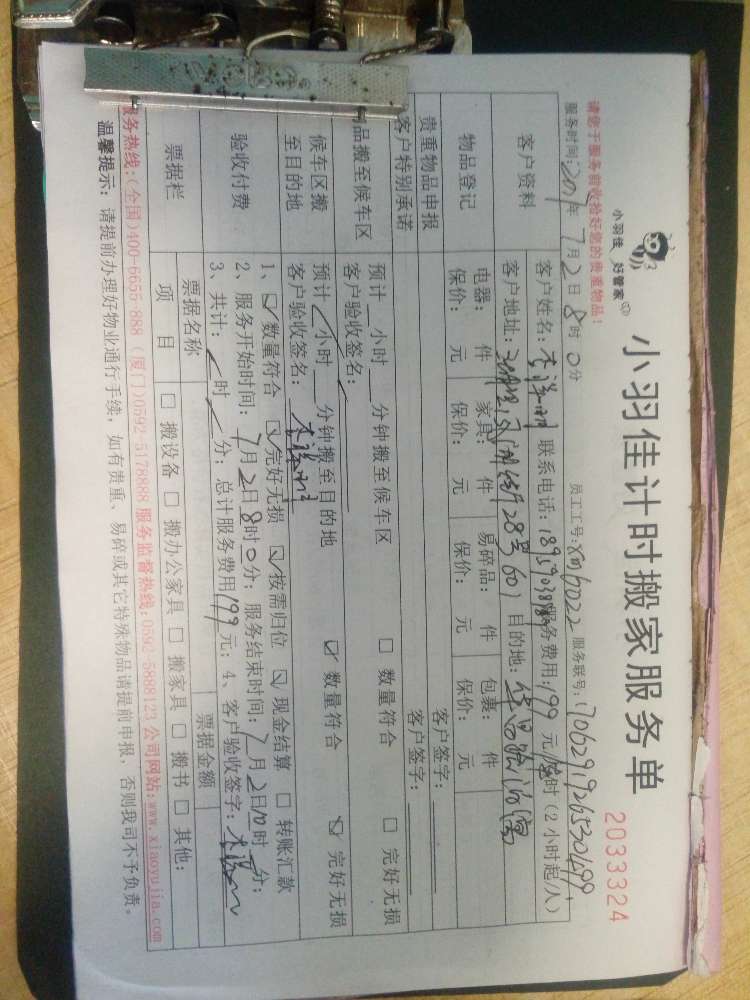 小羽佳 好管家
小羽佳计时搬家服务单
2033324
请您于服务前收拾好您的贵重物品！
服务时间：2017年7月2日8时0分 员工工号：xm6022 服务联号：
客户资料
客户姓名： 联系电话： 服务费用：199元/ 时（2小时起/人）
客户地址： 28号601 目的地：
物品登记
电器： 件 家具： 件 易碎品： 件 包裹： 件
保价： 元 保价： 元 保价： 元 保价： 元
贵重物品申报 客户签字：
客户特别承诺 客户签字：
品搬至候车区
预计 小时 分钟搬至候车区 □ 数量符合 □ 完好无损
客户验收签名：
候车区搬至目的地
预计 小时 分钟搬至目的地 ☑ 数量符合 ☑ 完好无损
客户验收签名：
验收付费
1、☑数量符合 ☑完好无损 ☑按需归位 ☑现金结算 □ 转账汇款
2、服务开始时间：7月2日8时0分；服务结束时间：7月2日10时 分；
3、共计： 时 分；总计服务费用199元；4、客户验收签字：
票据栏
票据名称 票据金额
项 目 □ 搬设备 □ 搬办公家具 □ 搬家具 □ 搬书 □ 其他：
服务热线：(全国)400-6655-888 (厦门)0592-5178888 服务监督热线：0592-5888123 公司网站：www.xiaoyujia.com
温馨提示：请提前办理好物业通行手续，如有贵重、易碎或其它特殊物品请提前申报，否则我司不予负责。